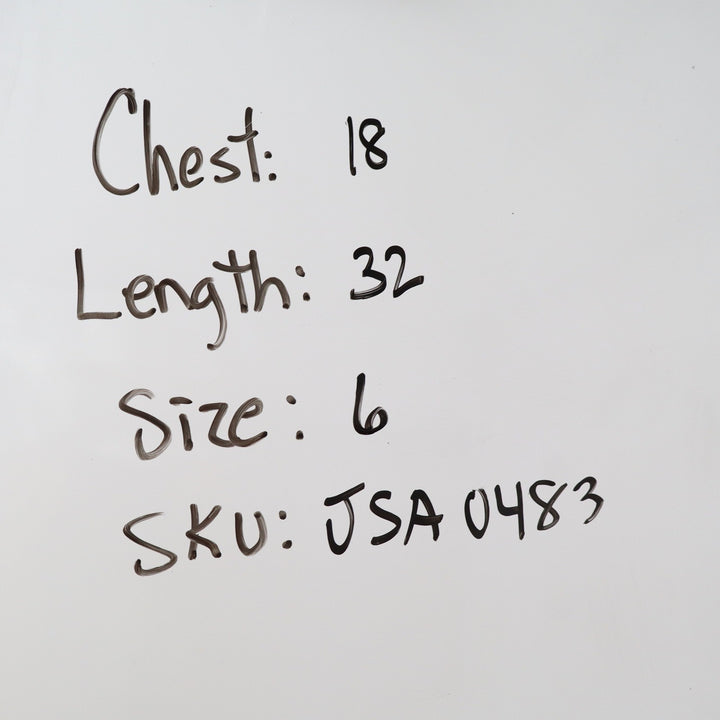 Chest: 18
Length: 32
Size: 6
SKU: JSA 0483